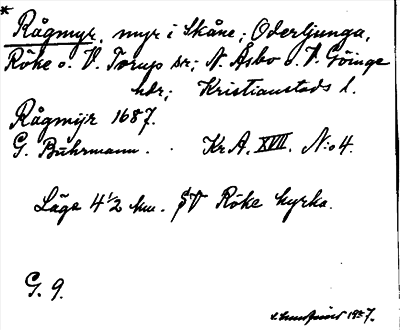 * Rågmyr, myr i Skåne; Oderljunga,
Röke o. V. Torup sr; N. Åsbo o. V. Göinge
hdr; Kristianstads l.
Rågmÿr 1687.
G. Buhrmann. . KrA. XVII. N:o 4.
Läge 4½ km. SV Röke kyrka.
G. 9.